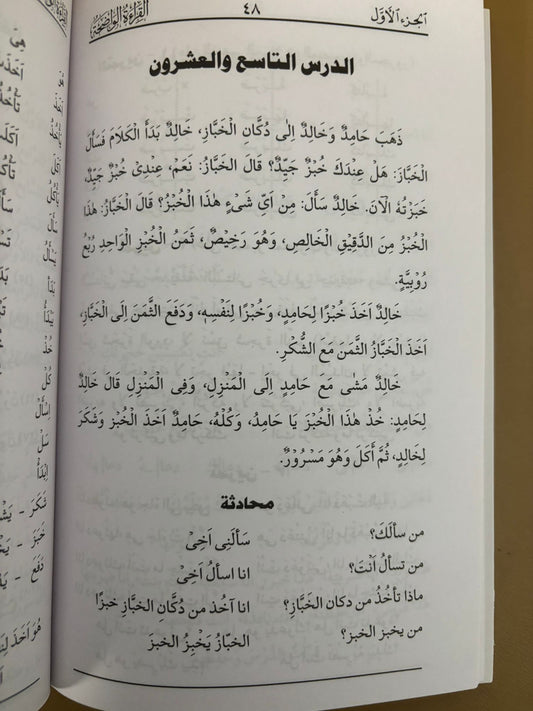 اَلجزء الْاَوَّل
٤٨
القراءة الواضحة
الدرس التاسع والعشرون
ذَهَبَ حَامِدٌ وَخَالِدٌ اِلٰى دُكَّانِ الْخَبَّازِ، خَالِدٌ بَدَأَ الْكَلَامَ فَسَأَلَ
الْخَبَّازَ: هَلْ عِنْدَكَ خُبْزٌ جَيِّدٌ؟ قَالَ الْخَبَّازُ: نَعَمْ، عِنْدِىْ خُبْزٌ جَيِّدٌ،
خَبَزْتُهُ الْآنَ. خَالِدٌ سَأَلَ: مِنْ اَىِّ شَىْءٍ هٰذَا الْخُبْزُ؟ قَالَ الْخَبَّازُ: هٰذَا
الْخُبْزُ مِنَ الدَّقِيْقِ الْخَالِصِ، وَهُوَ رَخِيْصٌ، ثَمَنُ الْخُبْزِ الْوَاحِدِ رُبْعُ
رُوْبِيَّةٍ.
خَالِدٌ اَخَذَ خُبْزًا لِحَامِدٍ، وَخُبْزًا لِنَفْسِهٖ، وَدَفَعَ الثَّمَنَ اِلَى الْخَبَّازِ،
اَخَذَ الْخَبَّازُ الثَّمَنَ مَعَ الشُّكْرِ.
خَالِدٌ مَشٰى مَعَ حَامِدٍ اِلَى الْمَنْزِلِ، وَفِى الْمَنْزِلِ قَالَ خَالِدٌ
لِحَامِدٍ: خُذْ هٰذَا الْخُبْزَ يَا حَامِدُ، وَكُلْهُ، حَامِدٌ اَخَذَ الْخُبْزَ وَشَكَرَ
لِخَالِدٍ، ثُمَّ أَكَلَ وَهُوَ مَسْرُوْرٌ.
محادثة
من سألَكَ؟ سَألَنِى اَخِىْ
من تسألُ اَنْتَ؟ انا اسألُ اَخِىْ
ماذا تأخُذُ من دكان الخَبَّازِ؟ انا آخُذُ من دُكَّانِ الخَبَّازِ خبزًا
من يخبز الخبز؟ الخبّازُ يَخْبِزُ الخبزَ